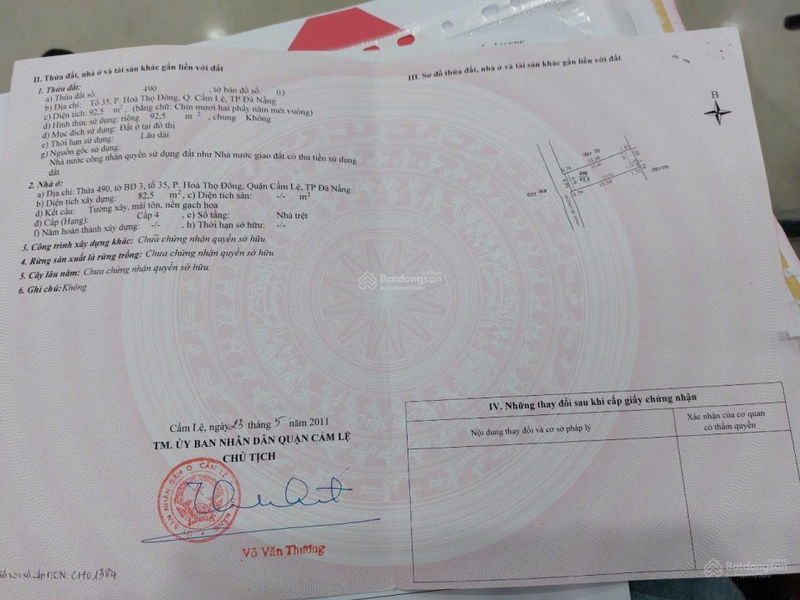 II. Thửa đất, nhà ở và tài sản khác gắn liền với đất
1. Thửa đất:
a) Thửa đất số: 490 , tờ bản đồ số: 03
b) Địa chỉ: Tổ 35, P. Hoà Thọ Đông, Q. Cẩm Lệ, TP Đà Nẵng
c) Diện tích: 92,5 m², (bằng chữ: Chín mươi hai phẩy năm mét vuông)
d) Hình thức sử dụng: riêng 92,5 m², chung Không
đ) Mục đích sử dụng: Đất ở tại đô thị
e) Thời hạn sử dụng: Lâu dài
g) Nguồn gốc sử dụng:
Nhà nước công nhận quyền sử dụng đất như Nhà nước giao đất có thu tiền sử dụng
đất
2. Nhà ở:
a) Địa chỉ: Thửa 490, tờ BĐ 3, tổ 35, P. Hoà Thọ Đông, Quận Cẩm Lệ, TP Đà Nẵng
b) Diện tích xây dựng: 82,5 m², c) Diện tích sàn: -/- m²
d) Kết cấu: Tường xây, mái tôn, nền gạch hoa
đ) Cấp (Hạng): Cấp 4 , e) Số tầng: Nhà trệt
f) Năm hoàn thành xây dựng: -/- , h) Thời hạn sở hữu: -/-
3. Công trình xây dựng khác: Chưa chứng nhận quyền sở hữu.
4. Rừng sản xuất là rừng trồng: Chưa chứng nhận quyền sở hữu.
5. Cây lâu năm: Chưa chứng nhận quyền sở hữu.
6. Ghi chú: Không
Cẩm Lệ, ngày 23 tháng 5 năm 2011
TM. ỦY BAN NHÂN DÂN QUẬN CẨM LỆ
CHỦ TỊCH
Võ Văn Thương
Số vào sổ cấp GCN: CH01384
III. Sơ đồ thửa đất, nhà ở và tài sản khác gắn liền với đất
B
IV. Những thay đổi sau khi cấp giấy chứng nhận
Nội dung thay đổi và cơ sở pháp lý
Xác nhận của cơ quan
có thẩm quyền
Batdongsan
Batdongsan